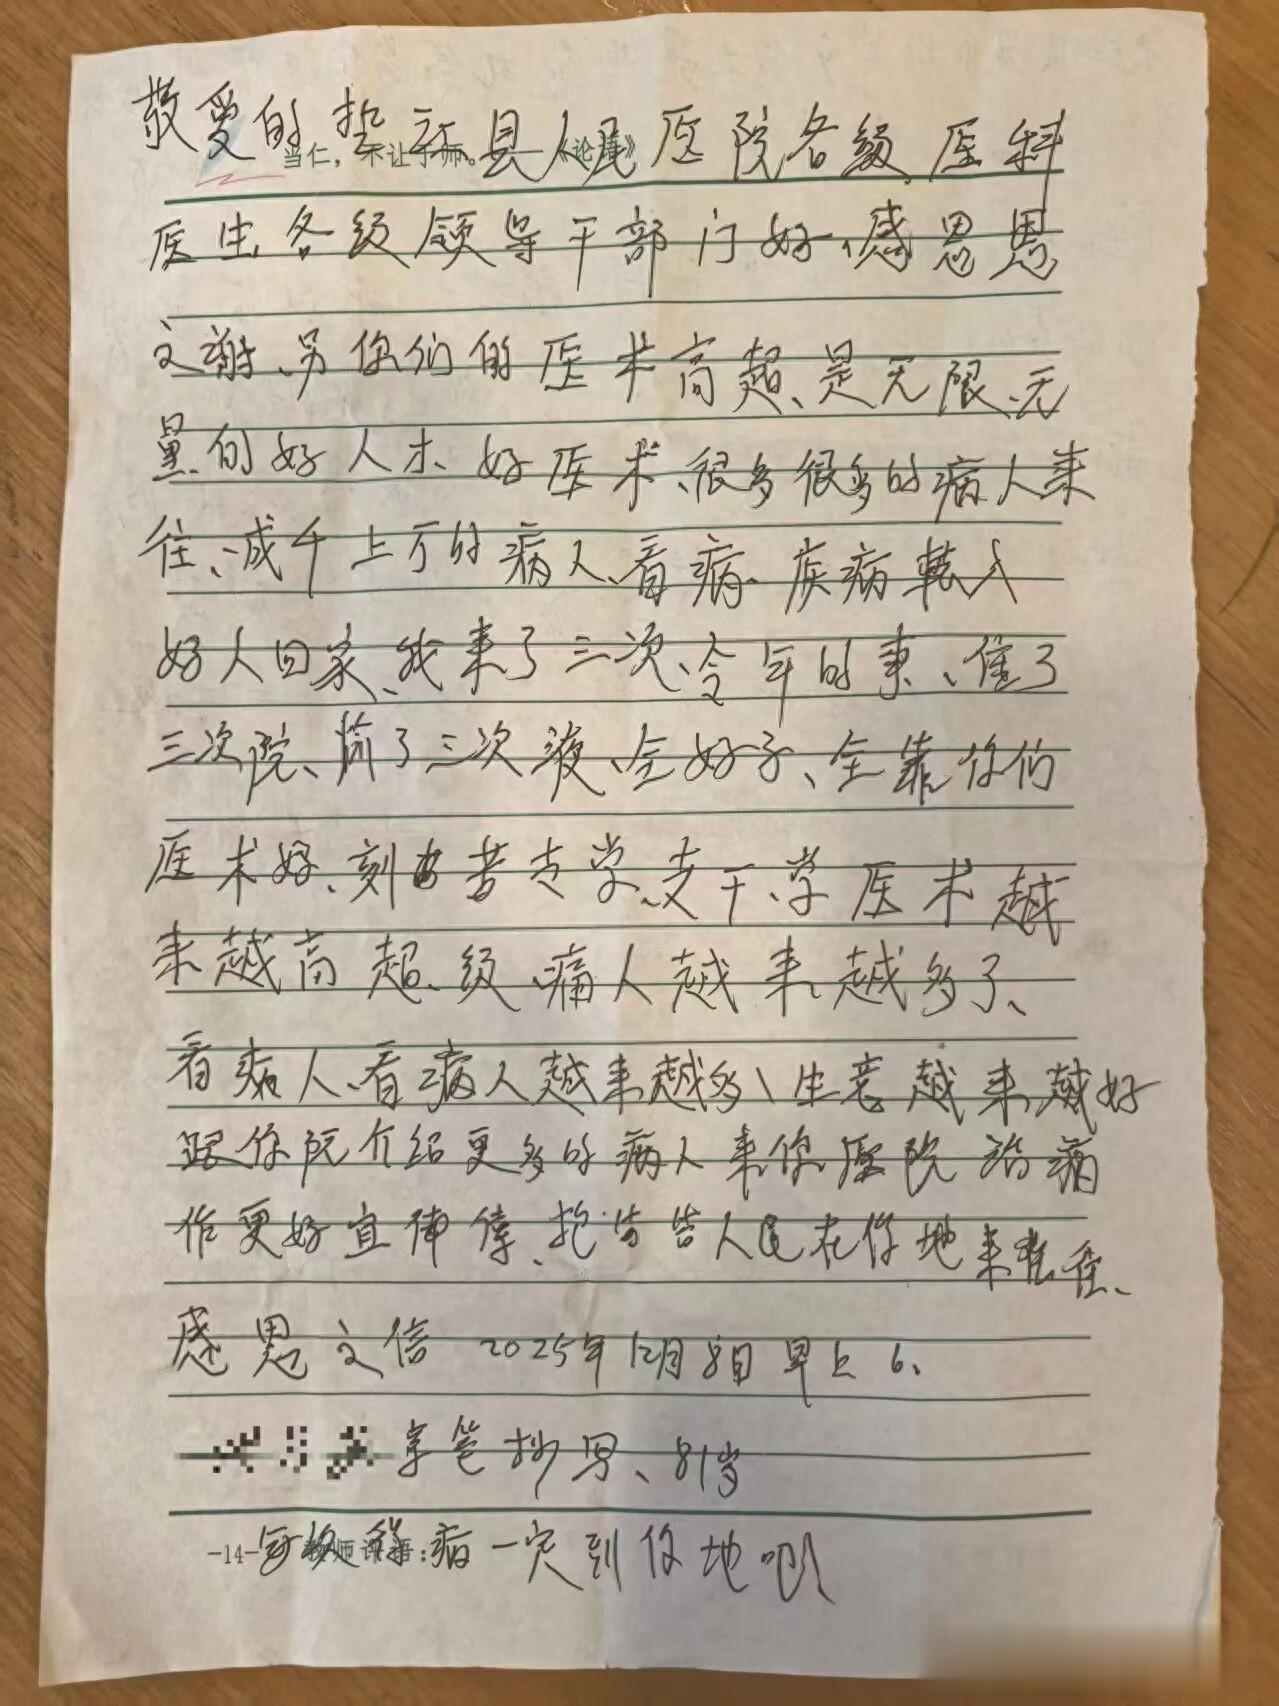 敬爱的垫江县人民医院各级医科
当仁，不让于师。《论语》
医生各级领导干部门好、感恩恩
文谢、另你们的医术高超、是无限、无
量的好人木、好医术、很多很多的病人来
往、成千上万的病人、看病、疾病转入
好人回家、我来了三次、今年的来、住了
三次院、输了三次液、全好了、全靠你们
医术好、刻苦学、支干、学医术越
来越高超、级、病人越来越多了、
看病人、看病人越来越多、生意越来越好
跟你院介绍更多的病人来你医院治病
作更好宣传、告告人民在你地来往、
感恩文信 2025年12月8日早上6、
亲笔抄写、81岁
-14- 教师评语：
病一定到你地吧